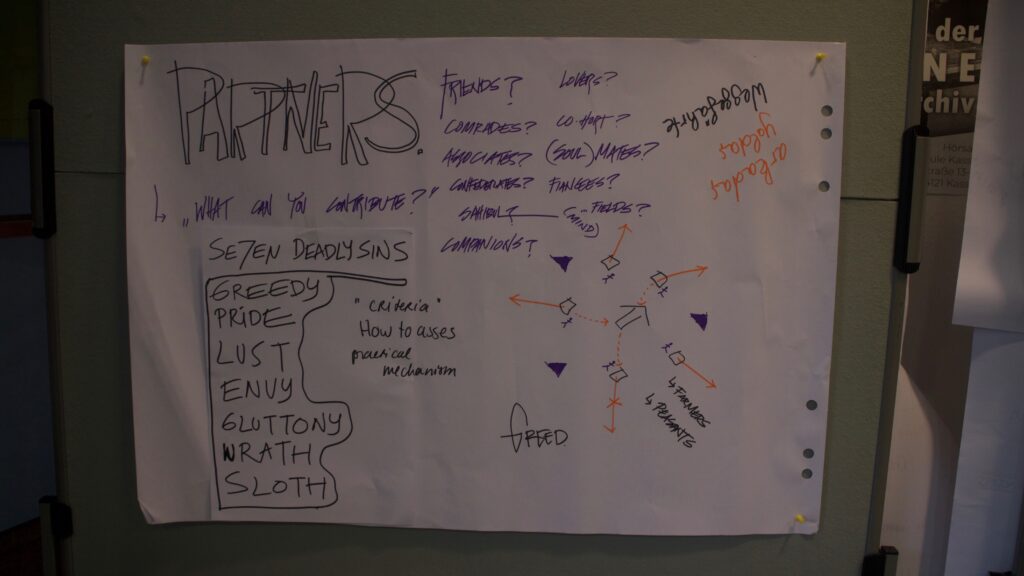 PARTNERS.
↳ „WHAT CAN YOU CONTRIBUTE?"
FRIENDS? LOVERS?
COMRADES? CO-HORT?
ASSOCIATES? (SOUL) MATES?
CONFEDERATES? FIANCEES?
(MIND) ...FIELDS?
COMPANIONS?
Weggefährte
yoldaş
arkadaş
SE7EN DEADLY SINS
GREEDY
PRIDE
LUST
ENVY
GLUTTONY
WRATH
SLOTH
"criteria"
How to asses
practical
mechanism
GREED
↳ FARMERS
↳ PEASANTS
der
NE
rchiv
Hörsa
ule Kasse
straße 13-
4121 Kass